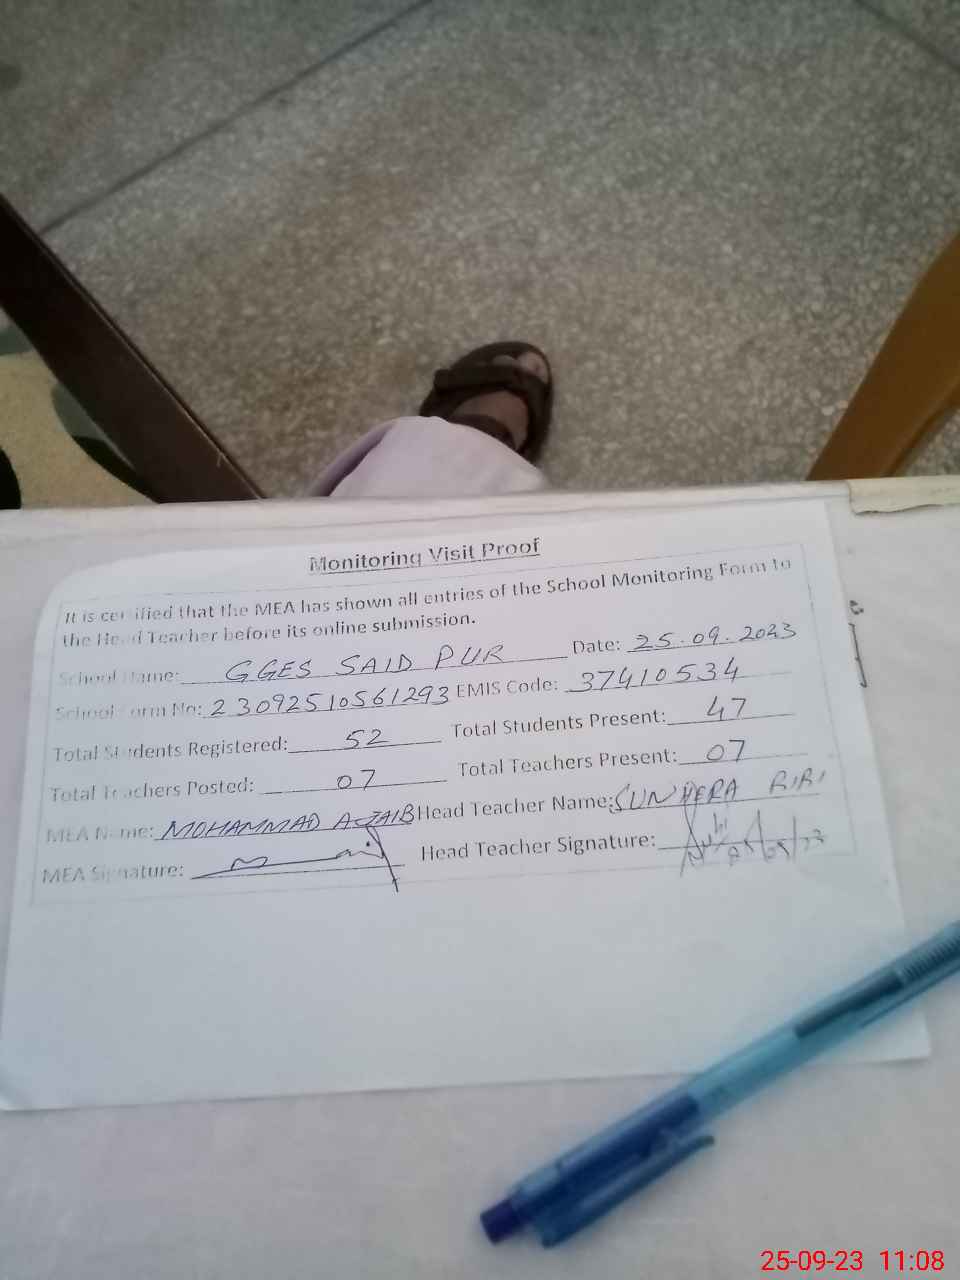 Monitoring Visit Proof
It is certified that the MEA has shown all entries of the School Monitoring Form to
the Head Teacher before its online submission.
School Name: GGES SAID PUR Date: 25.09.2023
School Form No: 23092510561293 EMIS Code: 37410534
Total Students Registered: 52 Total Students Present: 47
Total Teachers Posted: 07 Total Teachers Present: 07
MEA Name: MOHAMMAD AJAIB Head Teacher Name: SUNHERA BIBI
MEA Signature: Head Teacher Signature:
25-09-23 11:08